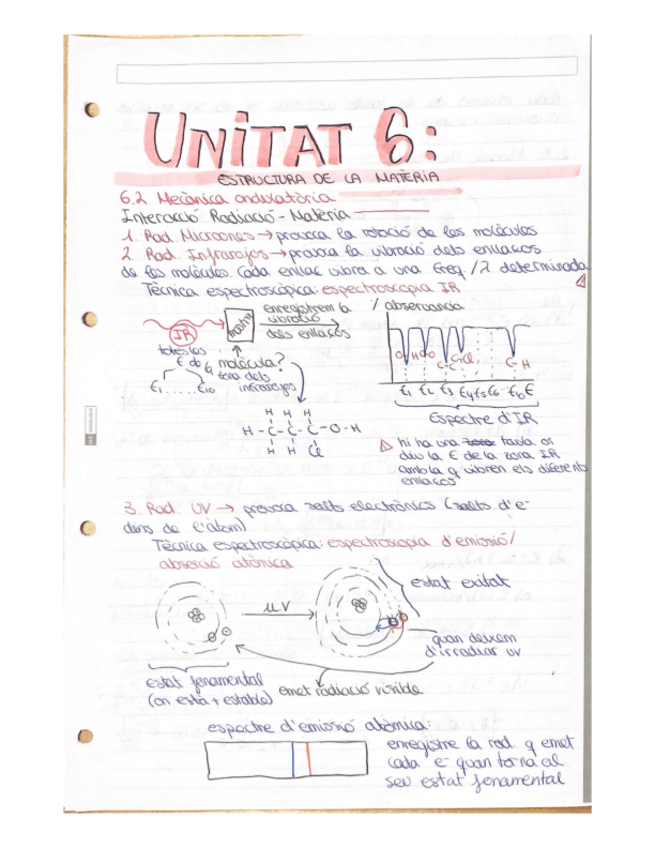 UNITAT 6:
ESTRUCTURA DE LA MATÈRIA
6.2 Mecànica ondulatòria
Interacció Radiació - Matèria
1. Rad. Microones → provoca la rotació de les molècules
2. Rad. Infrarojos → provoca la vibració dels enllaços
de les molècules. Cada enllaç vibra a una freq / λ determinada
Tècnica espectroscòpica: espectroscopia IR
enregistrem la
vibració
dels enllaços
matra
% absorvancia
IR
totes les
E de la
zona dels
infrarojos
molècula?
E1 ..... E10
O-H
C-O
C-C
C-Cl
C-H
E1 E2 E3 E4 E5 E6 ... E10 E
Espectre d'IR
H H H
H - C - C - C - O - H
H H Cl
hi ha una taula on
diu la E de la zona IR
amb la q vibren els diferents
enllaços
3. Rad. UV → provoca salts electrònics (salts d'e-
dins de l'àtom)
Tècnica espectroscòpica: espectroscopia d'emissió/
absorció atòmica
UV
estat exitat
quan deixem
d'irradiar UV
estat fonamental
(on està + estable)
emet radiació visible
espectre d'emissió atòmica:
enregistre la rad. q emet
cada e- quan torna al
seu estat fonamental